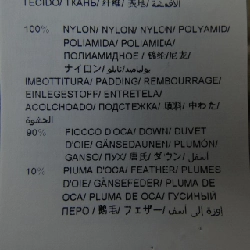 TECIDO/ ТКАНЬ/ 纤维/ 表地/ الأقمشة
100% NYLON/ NYLON/ NYLON/ POLYAMID/
POLIAMIDA/ POLIAMIDA/
ПОЛИАМИДНОЕ/ 锦纶/尼龙/
ナイロン/ بوليميد/نايلو
IMBOTTITURA/ PADDING/ REMBOURRAGE/
EINLEGESTOFF/ ENTRETELA/
ACOLCHOADO/ ПОДСТЕЖКА/ 填料/ 中わた/
الحشوة
90% PIOCCO D'OCA/ DOWN/ DUVET
D'OIE/ GÄNSEDAUNEN/ PLUMÓN/
GANSO/ ПУХ/ 鹅绒/ ダウン/
10% PIUMA D'OCA/ FEATHER/ PLUMES
D'OIE/ GÄNSEFEDER/ PLUMA DE
OCA/ PLUMA DE OCA/ ГУСИНЫЙ
ПЕРО/ 鹅毛/ フェザー/ إوزة إلى أسفل